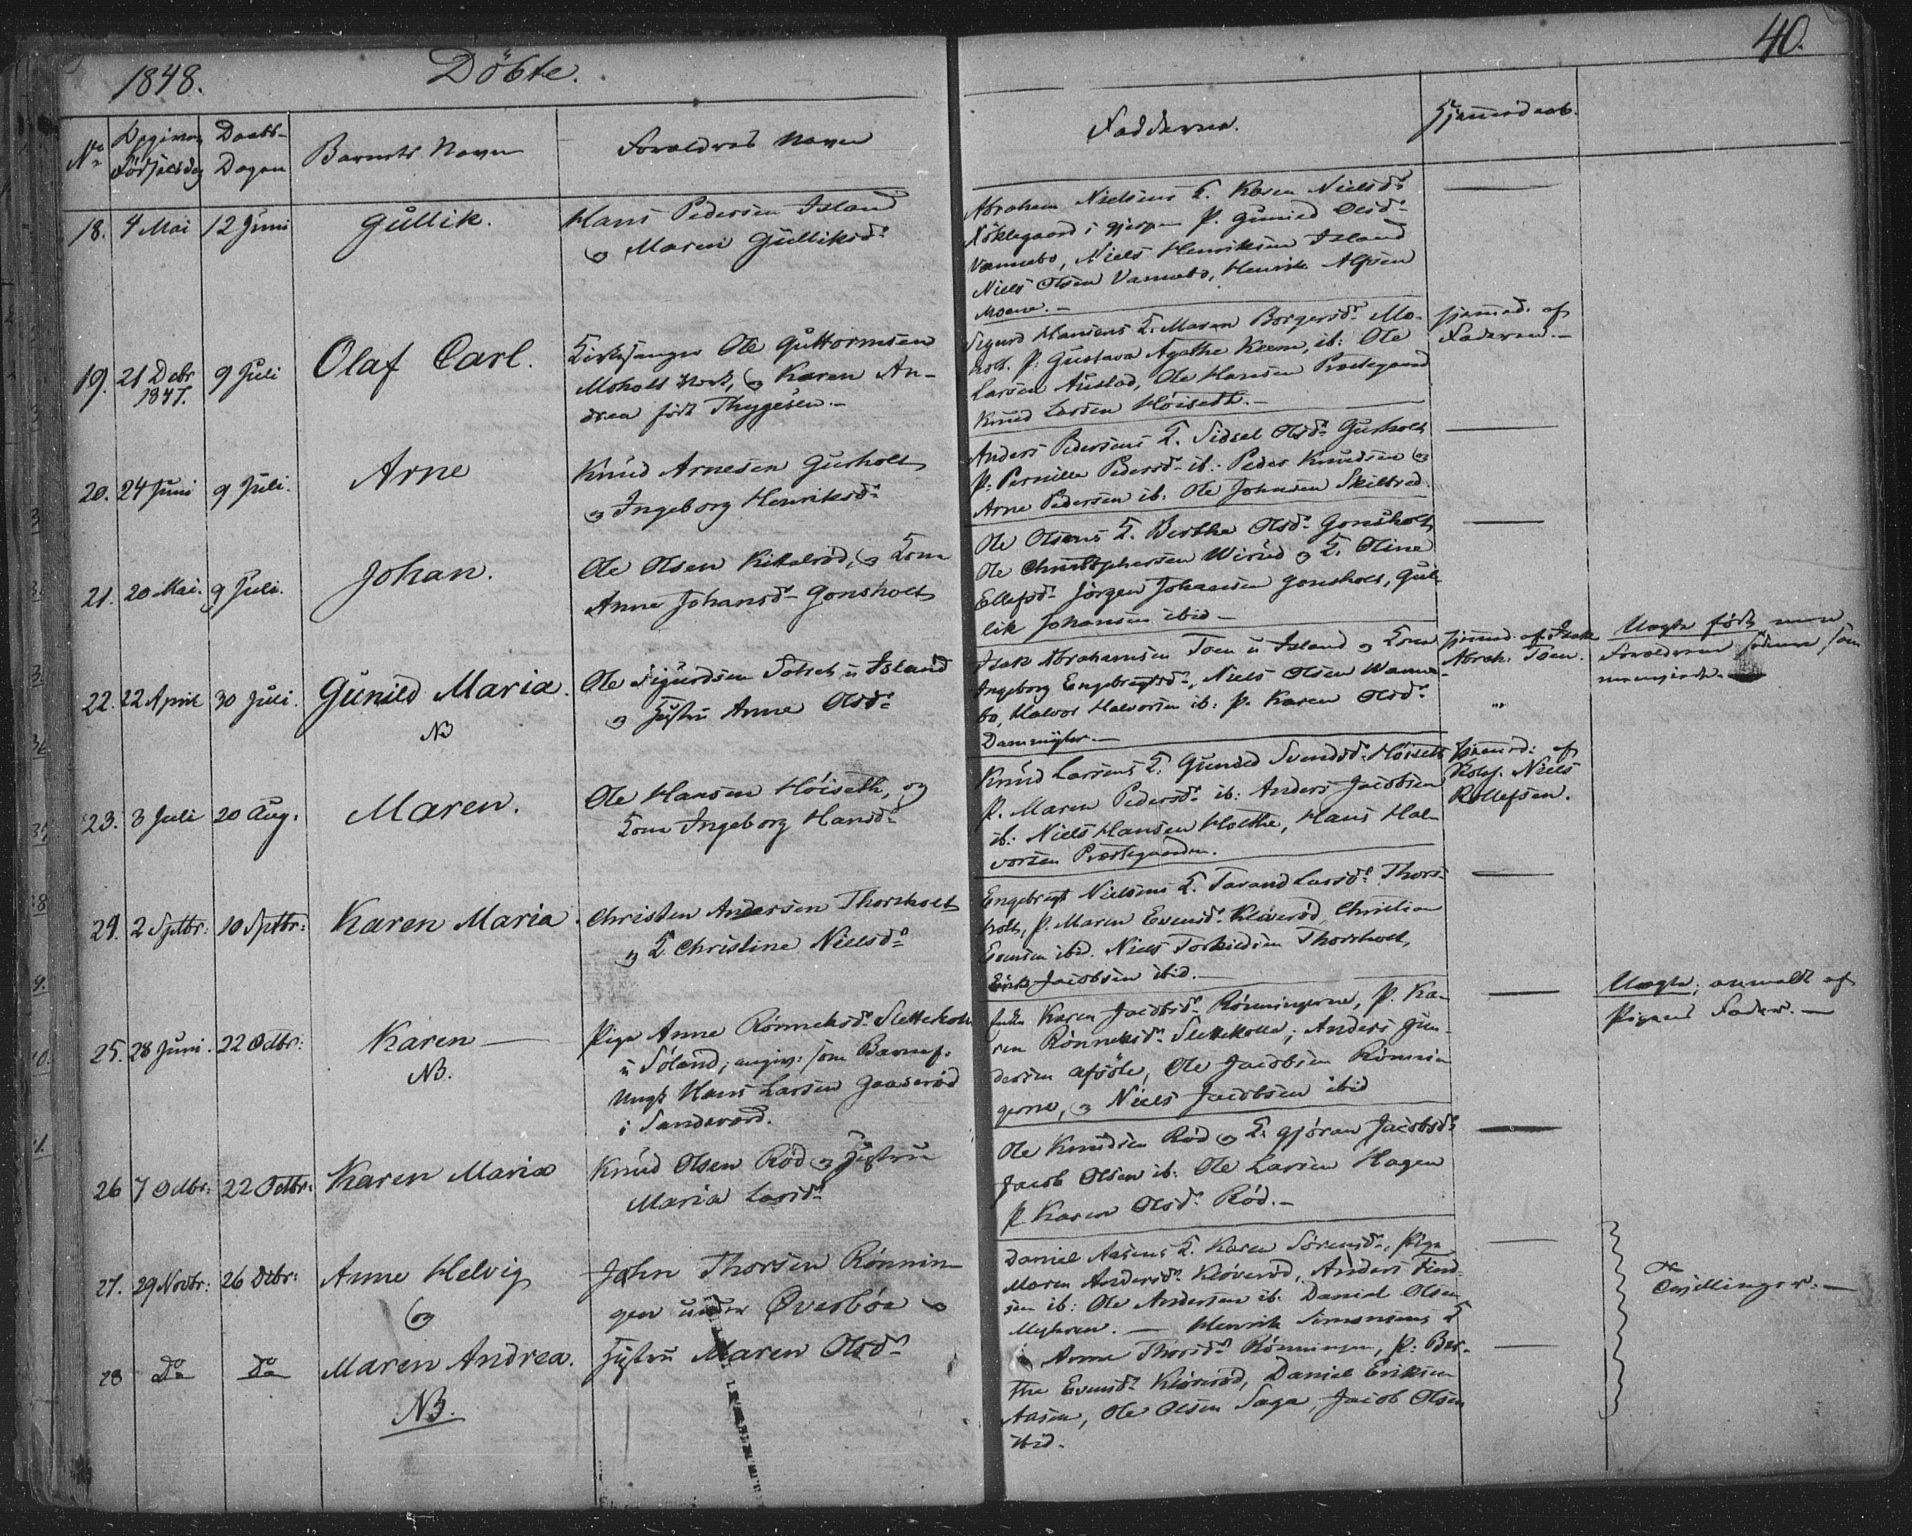 1848. Döbte. 40.
No Opgiven Födselsdag Daabs-Dagen Barnets Navn Forældres Navn Fadderne. Hjemmedaab.
18. 4 Mai 12 Juni Gullik. Hans Pedersen Island
og Maren Gulliksdr
Abraham Nielsens K. Karen Nielsdr
i Gjerpen P. Gunild Olsdr
Vannebo, Niels Henriksen Island
Niels Olsen Vannebo, Henrik
Moene.-
19. 21 Debr 1847. 9 Juli Olaf Carl. Kirkesanger Ole Guttormsen
Moholt, og Karen An-
drea født Thygesen.-
Sigurd Hansens K. Maren Borgersdr Mo-
holt. P: Gustava Agathe Keem, ib: Ole
Larsen Austad, Ole Hansen Præstegaard
Knud Larsen Höiseth.-
hjemmed. af
Faderen.-
20. 24 Juni 9 Juli. Arne Knud Arnesen Gusholt
og Ingeborg Henriksdr
Anders Pedersens K. Sidsel Olsdr Gusholt
P: Pernille Pedersdr ib: Peder Knudsen og
Arne Pedersen ib: Ole Johnsen Skilbred.
21. 20 Mai. 9 Juli. Johan. Ole Olsen Kikalsöd, og Kone
Anne Johansdr Gonsholt
Ole Olsens K. Berthe Olsdr Gonsholt
Ole Christophersen Wirud og K. Oline
Ellefsdr Jörgen Johansen Gonsholt, Gul-
lik Johansen ibid-
22. 22 April 30 Juli. Gunild Maria.
NB
Ole Sigurdsen u Island
og Hustru Anne Olsdr
Isak Abrahamsen Toen u Island og Kone
Ingeborg Engebregtsdr, Niels Olsen Wanne-
bo, Halvor Halvorsen ib: P. Karen Olsdr
Dammyhr.-
hjemmed. af Isak
Abrah. Toen.
Uægte født men
Forældrene som
23. 3 Juli 20 Aug. Maren. Ole Hansen Höiseth, og
Kone Ingeborg Hansdr
Knud Larsens K. Gunild Svendsdr Höiseth
P. Maren Pedersdr ib: Anders Jacobsen
ib: Niels Hansen Holthe, Hans Hal-
vorsen Præstegaarden.
hjemmd: af
Niels
Rollefsen.
24. 2 Sptbr: 10 Sptbr: Karen Maria. Christen Andersen Thorsholt
og K Christine Nielsdr
Engebregt Nielsens K. Tarand Larsdr Thors-
holt, P. Maren Evensdr Klöveröd, Christian
Evensen ibid. Niels Torkildsen Thorsholt,
Erik Jacobsen ibid.-
25. 28 Juni. 22 Octbr: Karen
NB.
Pige Anne Rönneksdr Slettekoll
u Söland, angiv: som Barnef.
Ungk Hans Larsen Gaaseröd
i Sandeværd.
Enke Karen Jacobsdr Rönningerne, P. Ka-
ren Rönneksdr Slettekolle; Anders Gun-
dersen, Ole Jacobsen Rönnin-
gerne, og Niels Jacobsen ibid
Uægte; anmeldt af
Pigens Fader.-
26 7 Octbr: 22 Octbr: Karen Maria Knud Olsen Röd og Hustru
Maria Larsdr
Ole Knudsen Röd og K. Gjöran Jacobsdr
Jacob Olsen ib: Ole Larsen Hagen
P Karen Olsdr Röd.-
27. 29 Novbr: 26 Dcbr: Anne Helvig
og
John Thorsen Rönnin-
gen under Överböe og
Daniel Aasens K. Karen Sörensdr, Pige
Maren Andersdr Klöveröd, Anders
sen ib: Ole Andersen ib. Daniel Olsen
Myhren.- Henrik Simonsens K
Tvillinger.-
28 Do Do Maren Andrea.
NB.
Hustru Maren Olsdr
Anne Thorsdr Rönningen, P: Ber-
the Evensdr Klöveröd, Daniel Eriksen
Aasen, Ole Olsen Saga, Jacob Olsen
ibid.